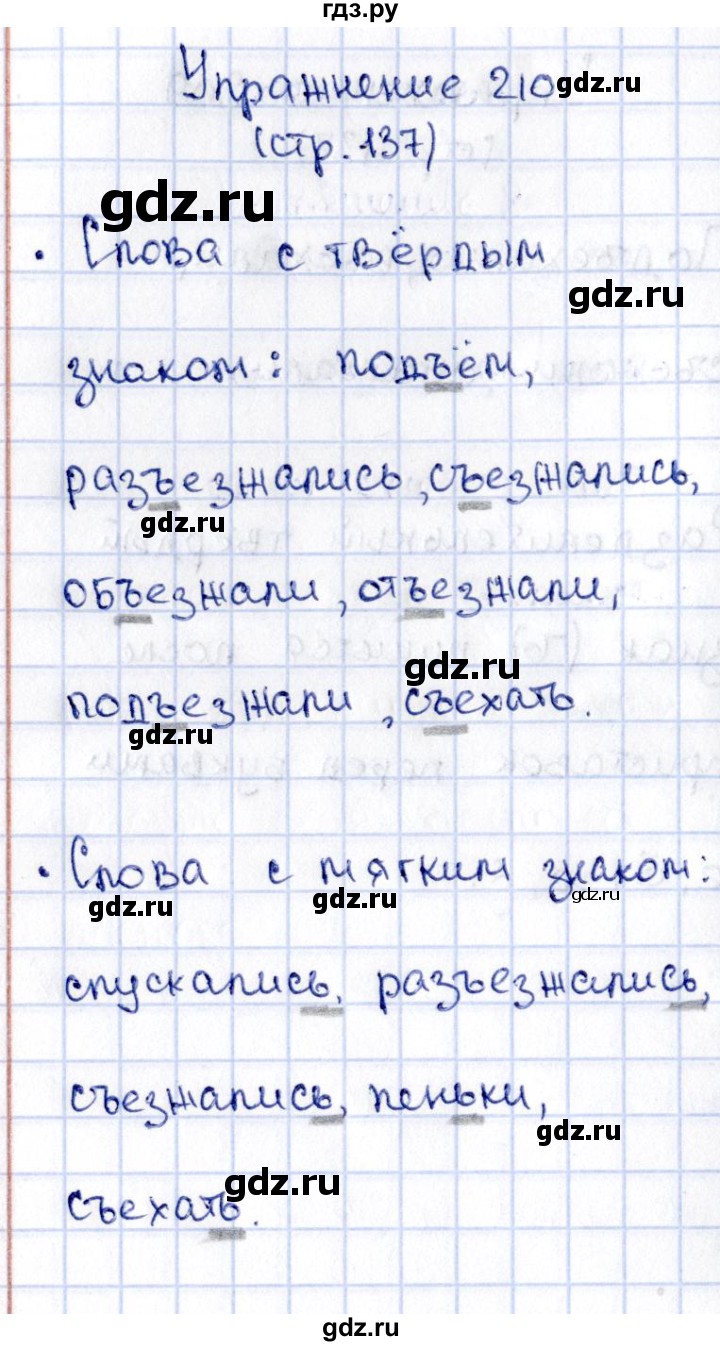 гдз.ру
Упражнение 210
gdz.ru
(стр. 137)
gdz.ru
• Слова с твёрдым
gdz.ru
знаком: подъём,
разъезжались, съезжались,
gdz.ru
объезжали, отъезжали,
gdz.ru
подъезжали, съехать.
gdz.ru
• Слова с мягким знаком:
gdz.ru
gdz.ru
gdz.ru
спускались, разъезжались,
съезжались, пеньки,
gdz.ru
gdz.ru
съехать.
gdz.ru